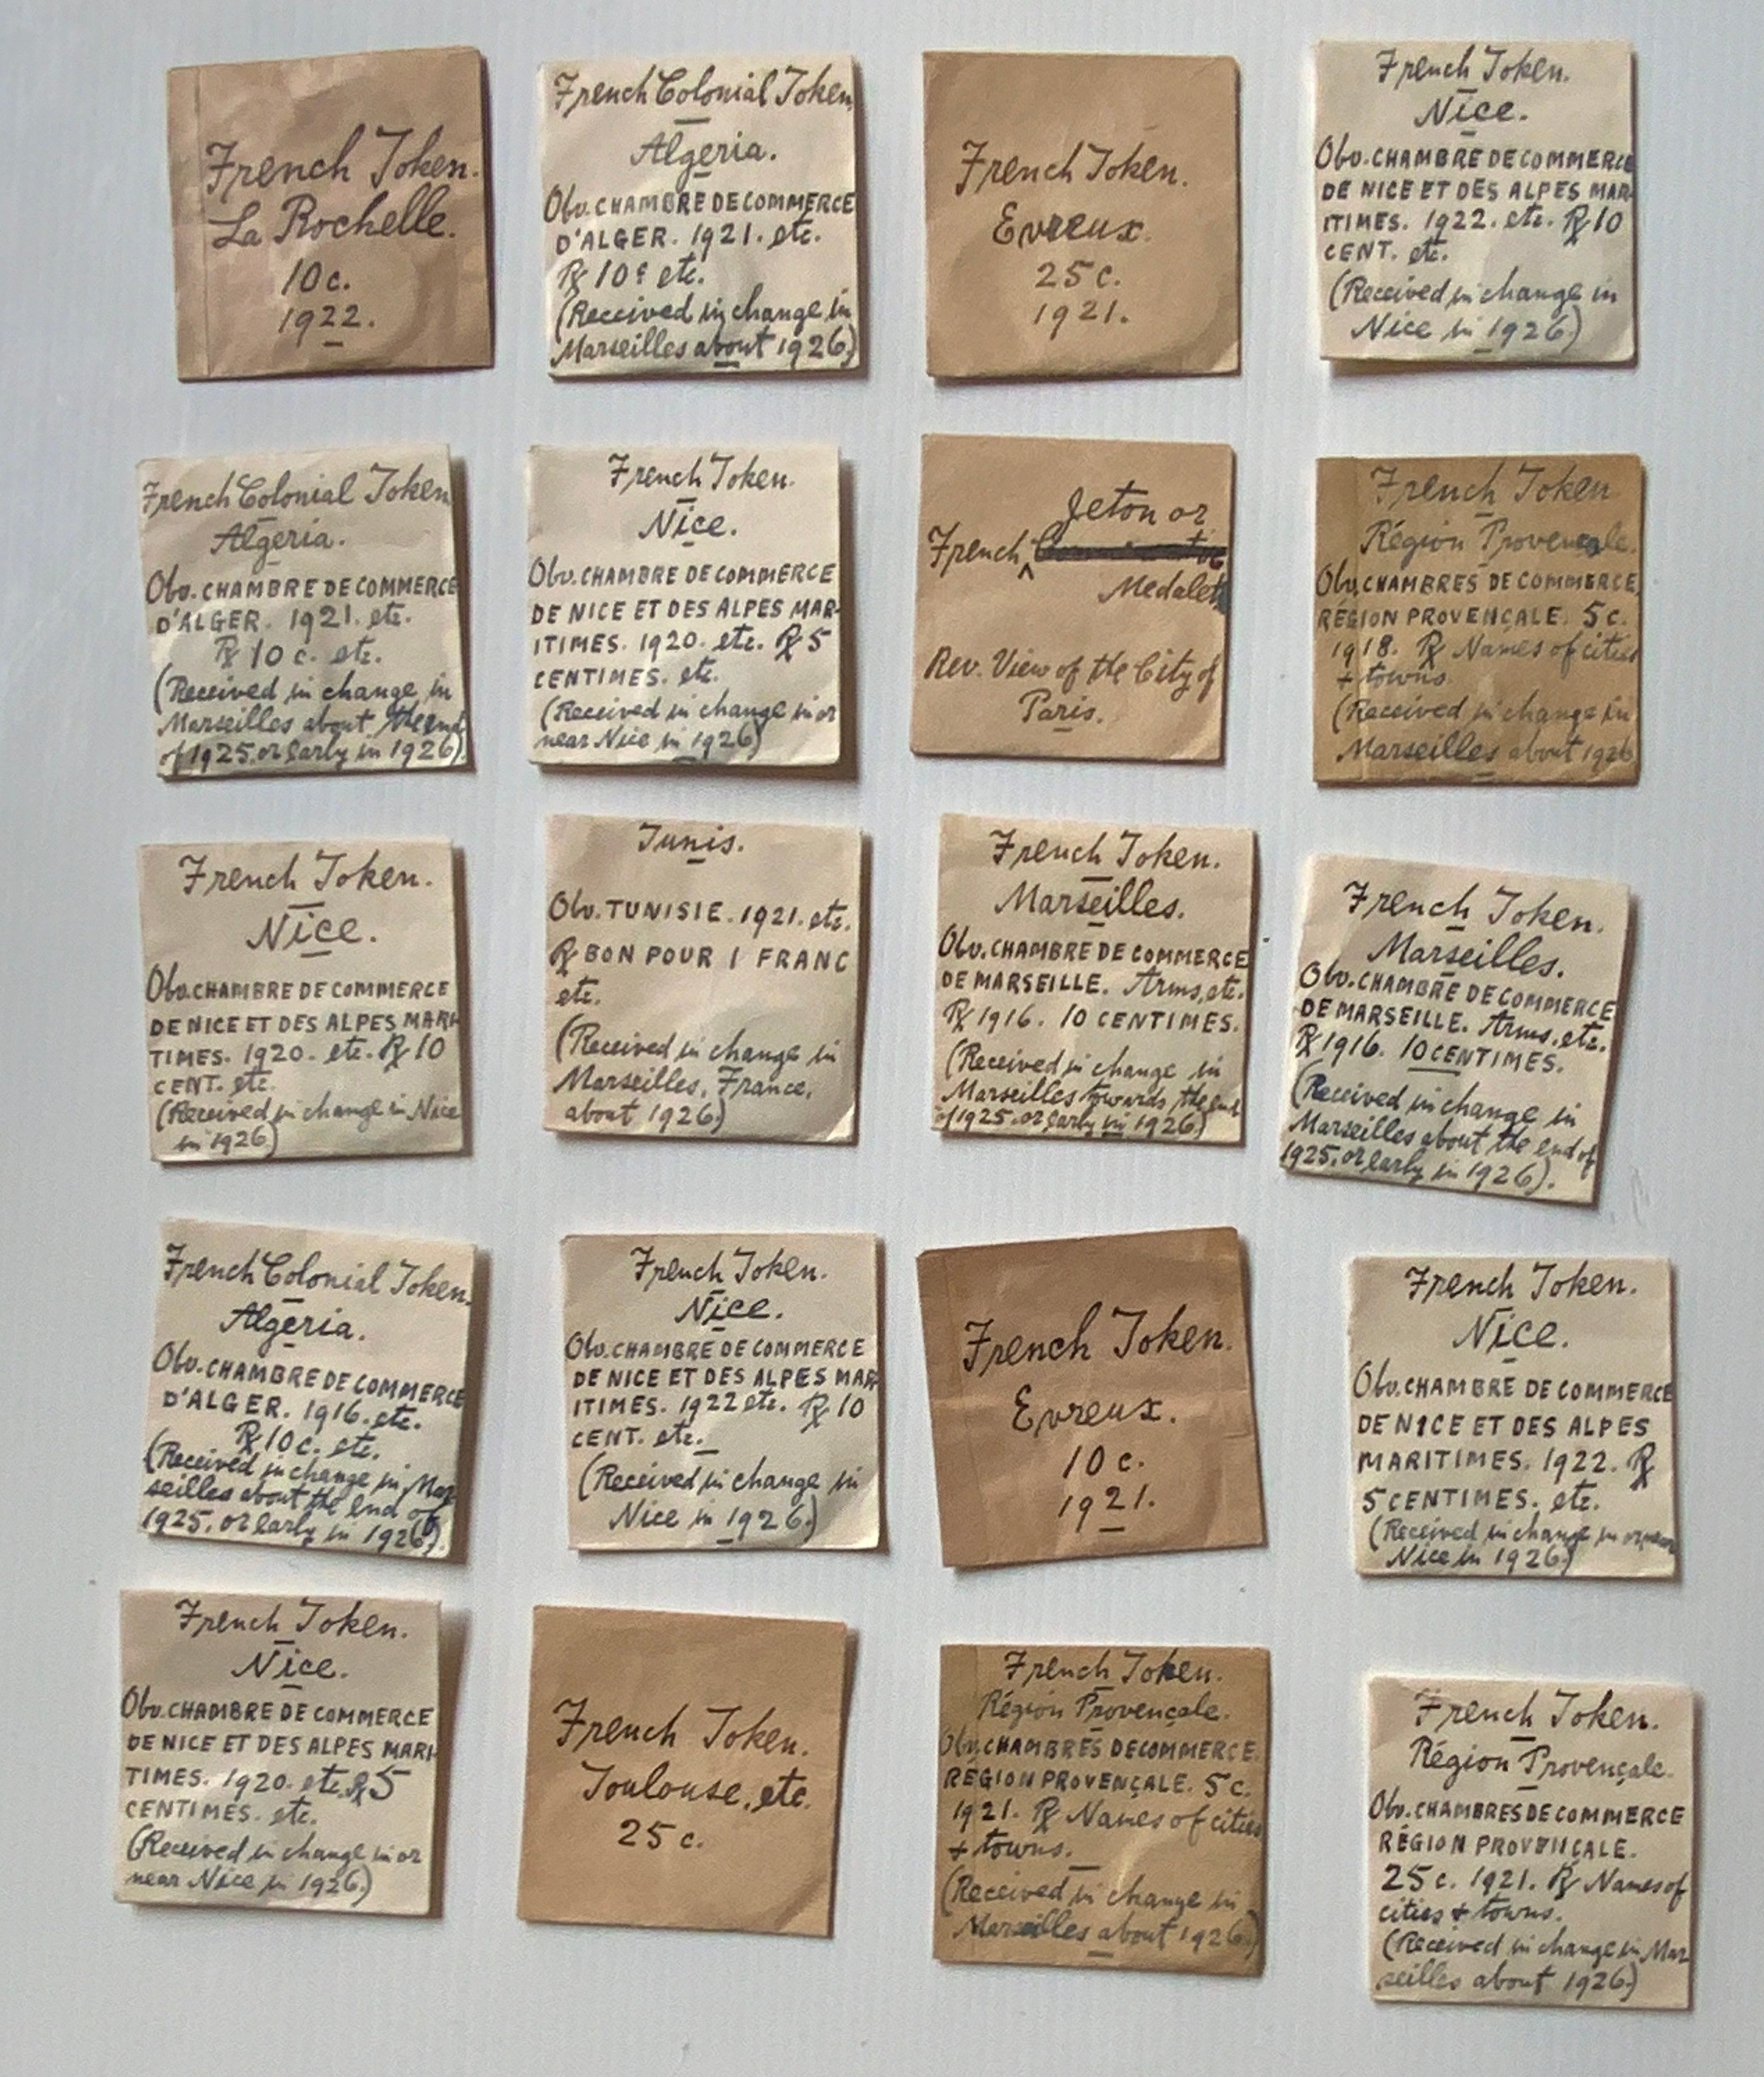 French Token.
La Rochelle.
10c.
1922.
French Colonial Token
Algeria.
Obv. CHAMBRE DE COMMERCE
D'ALGER. 1921. etc.
℞ 10c etc.
(Received in change in
Marseilles about 1926)
French Token.
Evreux.
25c.
1921.
French Token.
Nice.
Obv. CHAMBRE DE COMMERCE
DE NICE ET DES ALPES MAR-
ITIMES. 1922. etc. ℞ 10
CENT. etc.
(Received in change in
Nice in 1926)
French Colonial Token
Algeria.
Obv. CHAMBRE DE COMMERCE
D'ALGER. 1921. etc.
℞ 10 c. etc.
(Received in change in
Marseilles about the end
of 1925, or early in 1926)
French Token.
Nice.
Obv. CHAMBRE DE COMMERCE
DE NICE ET DES ALPES MAR-
ITIMES. 1920. etc. ℞ 5
CENTIMES. etc.
(Received in change in or
near Nice in 1926)
Jeton or
French
Medalet
Rev. View of the City of
Paris.
French Token
Région Provençale.
Obv. CHAMBRES DE COMMERCE,
RÉGION PROVENÇALE. 5c.
1918. ℞ Names of cities
+ towns.
(Received in change in
Marseilles about 1926
French Token.
Nice.
Obv. CHAMBRE DE COMMERCE
DE NICE ET DES ALPES MARI
TIMES. 1920. etc. ℞ 10
CENT. etc.
(Received in change in Nice
in 1926)
Tunis.
Obv. TUNISIE. 1921. etc.
℞ BON POUR 1 FRANC
etc.
(Received in change in
Marseilles, France,
about 1926)
French Token.
Marseilles.
Obv. CHAMBRE DE COMMERCE
DE MARSEILLE. Arms, etc.
℞ 1916. 10 CENTIMES.
(Received in change in
Marseilles towards the end
of 1925, or early in 1926)
French Token.
Marseilles.
Obv. CHAMBRE DE COMMERCE
DE MARSEILLE. Arms, etc.
℞ 1916. 10 CENTIMES.
(Received in change in
Marseilles about the end of
1925, or early in 1926).
French Colonial Token.
Algeria.
Obv. CHAMBRE DE COMMERCE
D'ALGER. 1916. etc.
℞ 10c. etc.
(Received in change in Mar
seilles about the end of
1925, or early in 1926).
French Token.
Nice.
Obv. CHAMBRE DE COMMERCE
DE NICE ET DES ALPES MAR
ITIMES. 1922 etc. ℞ 10
CENT. etc.
(Received in change in
Nice in 1926.)
French Token.
Evreux.
10c.
1921.
French Token.
Nice.
Obv. CHAMBRE DE COMMERCE
DE NICE ET DES ALPES
MARITIMES. 1922. ℞
5 CENTIMES. etc.
(Received in change in or near
Nice in 1926.)
French Token.
Nice.
Obv. CHAMBRE DE COMMERCE
DE NICE ET DES ALPES MARI
TIMES. 1920. etc. ℞ 5
CENTIMES. etc.
(Received in change in or
near Nice in 1926.)
French Token.
Toulouse, etc.
25c.
French Token.
Région Provençale.
Obv. CHAMBRES DE COMMERCE.
RÉGION PROVENÇALE. 5c.
1921. ℞ Names of cities
+ towns.
(Received in change in
Marseilles about 1926.)
French Token.
Région Provençale.
Obv. CHAMBRES DE COMMERCE
RÉGION PROVENÇALE.
25c. 1921. ℞ Names of
cities + towns.
(Received in change in Mar
seilles about 1926.)